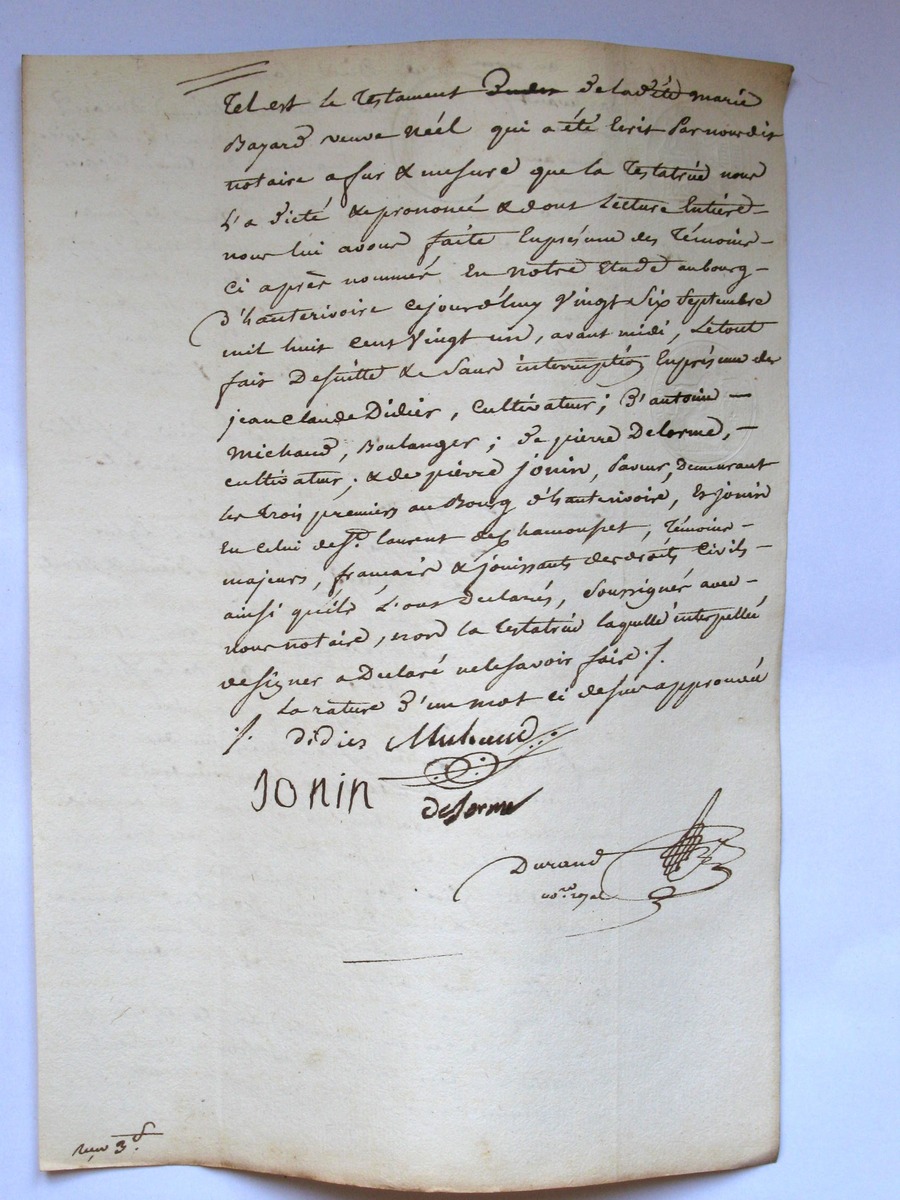 Tel est le Testament de lad.te marie
Bayard veuve Néel qui a été Ecrit Par nousdit
notaire a fur & mesure que la Testatrice nous
L'a dicté & prononcé & dont Lecture Entiere
nous lui avons faite En présence des Témoins
ci après nommés En notre Etude au bourg
d'hauterivoire cejourd'huy Vingt Six Septembre
mil huit cent Vingt un, avant midi, Le tout
fait De suitte & Sans interruption En présence des
jean Claude Didier, Cultivateur; D'antoine
Michaud, Boulanger; de pierre Delorme,
cultivateur; & de pierre Jonin, demeurant
les trois premiers au Bourg d'hauterivoire, Et jonin
En Celui de St. laurent de Chamousset, Témoins
majeurs, francais & jouissants des droits Civils
ainsi qu'ils L'ont Declarés, Soussignés avec
nous notaire, non la Testatrice laquelle interpellée
de signer a Declaré ne le savoir faire ./.
La rature d'un mot ci dessus approuvée
./. didier Michaud
Jonin
delorme
Durand
no.re royal
Reçu 3 f.